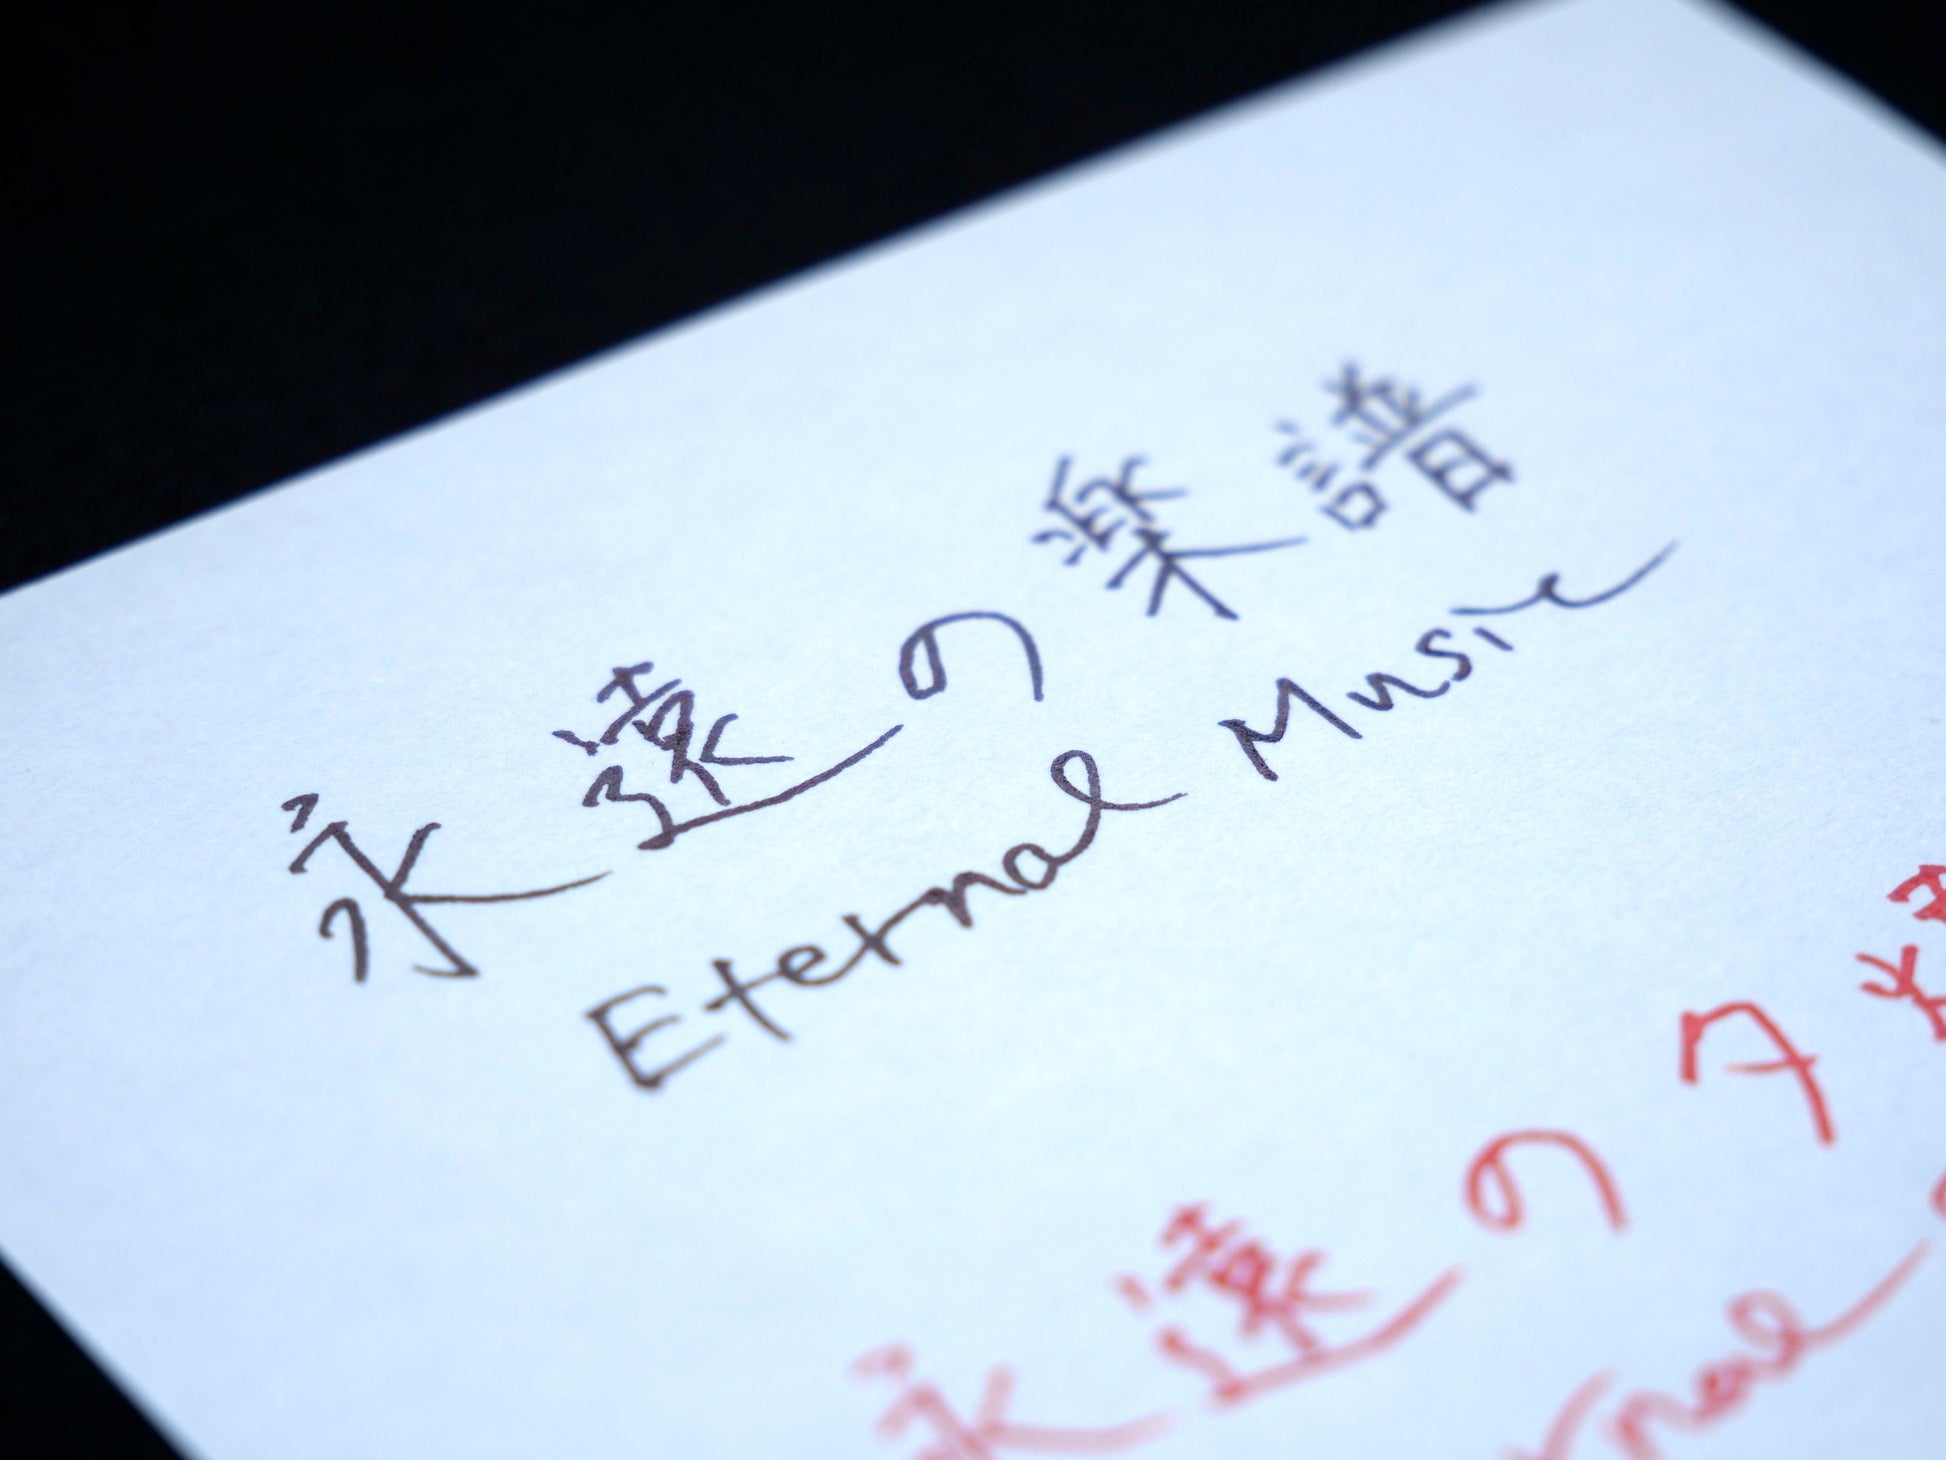 永遠の楽譜
Eternal Music
永遠の
rnal